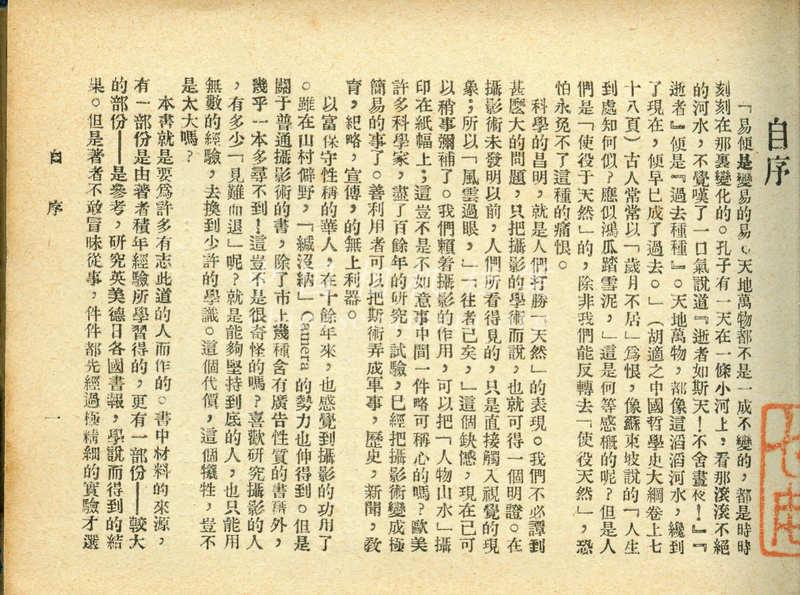 自序
「易便是變易的易。天地萬物都不是一成不變的，都是時時
刻刻在那裏變化的。孔子有一天在一條小河上，看那滾滾不絕
的河水，不覺嘆了一口氣說道『逝者如斯夫！不舍晝夜！』『
逝者』便是『過去種種』。天地萬物，都像這滔滔河水，纔到
了現在，便早已成了過去。」（胡適之中國哲學史大綱卷上七
十八頁）古人常常以「歲月不居」爲恨，像蘇東坡說的「人生
到處知何似？應似鴻瓜踏雪泥，」這是何等感概的呢？但是人
們是「使役于天然」的，除非我們能反轉去「使役天然」，恐
怕永免不了這種的痛恨。
科學的昌明，就是人們打勝「天然」的表現。我們不必譚到
甚麽大的問題，只把攝影的學術而說，也就可得一個明證。在
攝影術未發明以前，人們所看得見的，只是直接觸入視覺的現
象；所以「風雲過眼，」「往者已矣，」這個缺憾，現在已可
以稍事彌補了。我們賴着攝影的作用，可以把「人物山水」攝
印在紙幅上；這豈不是不如意事中間一件略可稱心的嗎？歐美
許多科學家，盡了百餘年的研究，試驗，已經把攝影術變成極
簡易的事了。善利用者可以把斯術弄成軍事，歷史，新聞，敎
育，紀略，宣傳，的無上利器。
以富保守性稱的華人，在十餘年來，也感覺到攝影的功用了
。雖在山村僻野，「緘沒納」Camera 的勢力也伸得到。但是
關于普通攝影術的書，除了市上幾種含有廣告性質的書籍外，
幾乎一本多尋不到！這豈不是很奇怪的嗎？喜歡研究攝影的人
，有多少「見難而退」呢？就是能夠堅持到底的人，也只能用
無數的經驗，去換到少許的學識。這個代價，這個犧牲，豈不
是太大嗎？
本書就是要爲許多有志此道的人而作的。書中材料的來源，
有一部份是由著者積年經驗所學習得的，更有一部份——較大
的部份——是參考，研究英美德日各國書報，學說而得到的結
果。但是著者不敢冒昧從事，件件都先經過極精細的實驗才選
自序
一